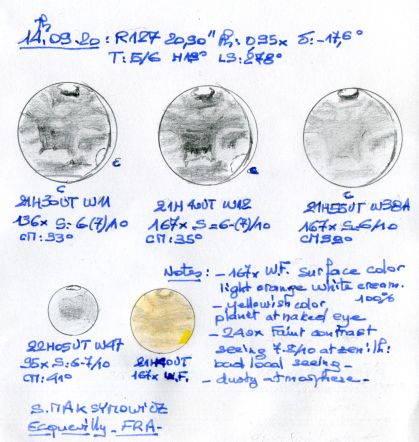 14.09.20 : R127 20,90" Ph: 0.95x δ: -17,6°
T: 5/6 H 18° LS: 278°
E
C
21H30UT W11
136x S: 6-(7)/10
CM: 33°
21H40UT W12
167x S: 6-(7)/10
CM: 35°
C
21H55UT W38A
167x S: 6/10
CM 39°
22H05UT W47
95x S: 6-7/10
CM: 41°
21H40UT
167x W.F.
Notes: - 167x W.F. Surface color
light orange white cream.
- yellowish color 100%
planet at naked eye
- 240x faint contrast
seeing 7-8/10 at zenith:
bad local seeing -
- dusty atmosphere -
S. MAKSYMOWICZ
Ecquevilly - FRA -